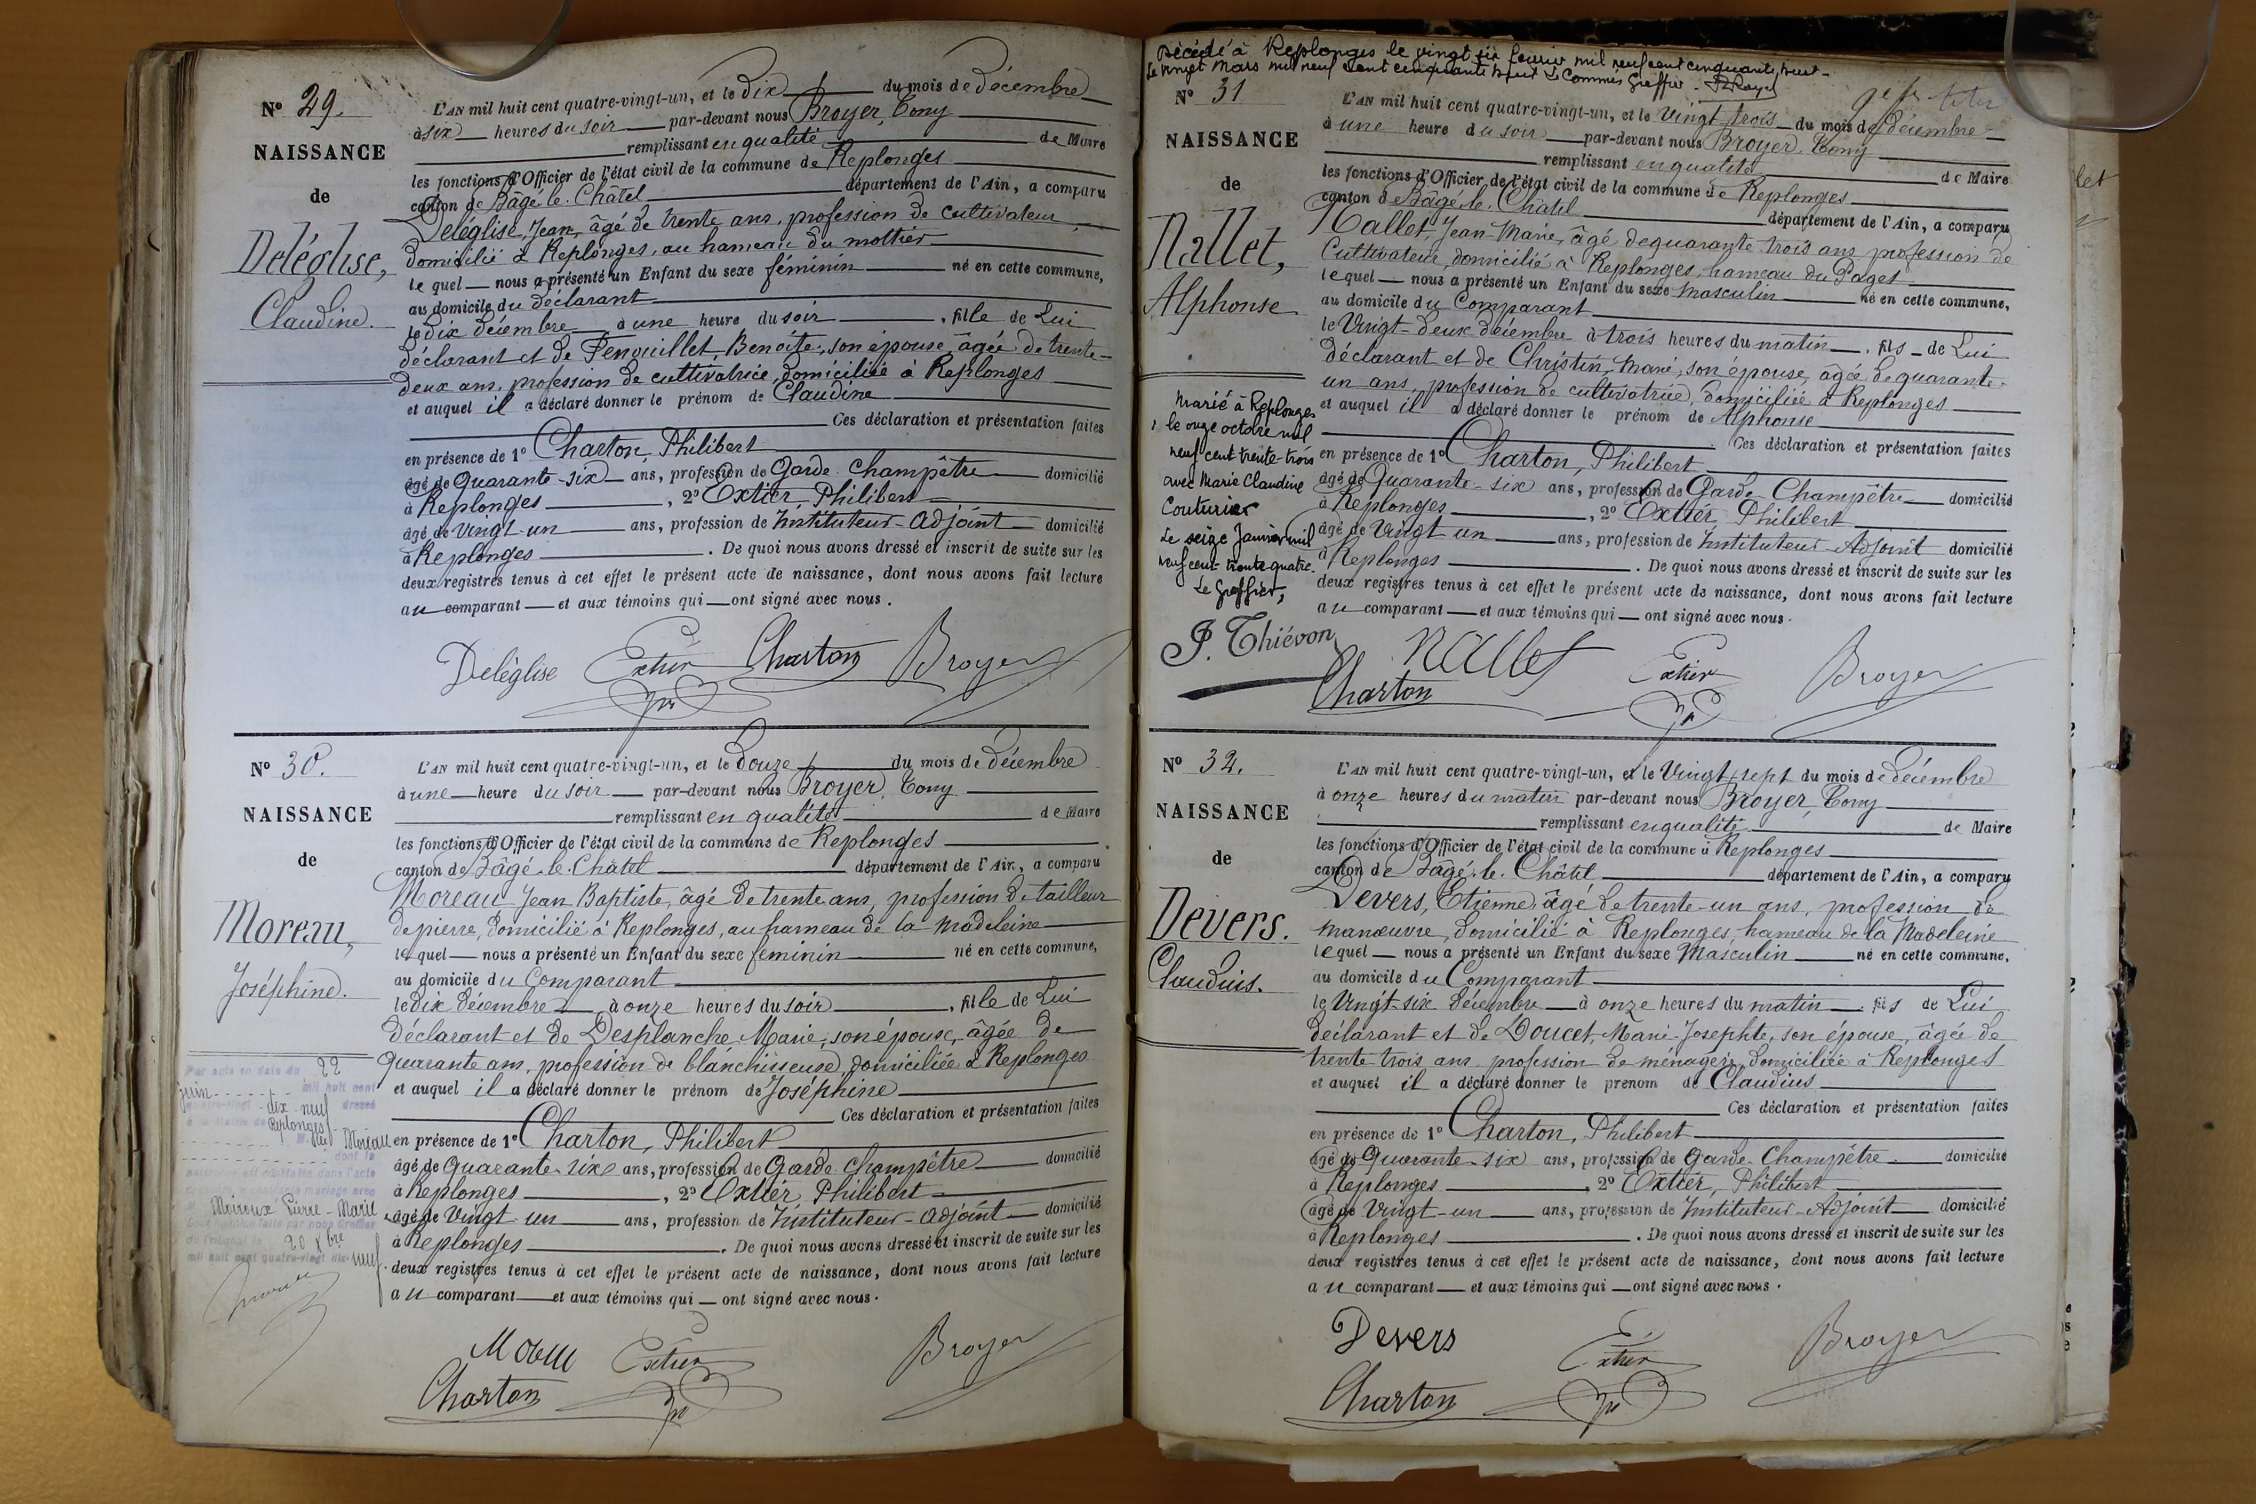 N° 29.
NAISSANCE
de
Deléglise,
Claudine.
L'AN mil huit cent quatre-vingt-un, et le dix du mois de décembre
à six heures du soir par-devant nous Broyer, Tony
remplissant en qualité de Maire
les fonctions d'Officier de l'état civil de la commune de Replonges
canton de Bâgé-le-Châtel département de l'Ain, a comparu
Deléglise, Jean, âgé de trente ans, profession de cultivateur,
domicilié à Replonges, au hameau du mottier
le quel nous a présenté un Enfant du sexe féminin né en cette commune,
au domicile du déclarant
le dix décembre à une heure du soir, fille de Lui
déclarant et de Penouillet, Benoîte, son épouse, âgée de trente-
deux ans, profession de cultivatrice, domiciliée à Replonges
et auquel il a déclaré donner le prénom de Claudine
Ces déclaration et présentation faites
en présence de 1° Charton, Philibert
âgé de Quarante-six ans, profession de Garde-champêtre domicilié
à Replonges, 2° Extier, Philibert
âgé de vingt-un ans, profession de Instituteur-adjoint domicilié
à Replonges. De quoi nous avons dressé et inscrit de suite sur les
deux registres tenus à cet effet le présent acte de naissance, dont nous avons fait lecture
au comparant et aux témoins qui ont signé avec nous.
Deléglise Extier Charton Broyer
N° 30.
NAISSANCE
de
Moreau,
Joséphine.
L'AN mil huit cent quatre-vingt-un, et le douze du mois de décembre
à une heure du soir par-devant nous Broyer, Tony
remplissant en qualité de Maire
les fonctions d'Officier de l'état civil de la commune de Replonges
canton de Bâgé-le-Châtel département de l'Ain, a comparu
Moreau Jean Baptiste, âgé de trente ans, profession de tailleur
de pierre, domicilié à Replonges, au hameau de la Madeleine
le quel nous a présenté un Enfant du sexe féminin né en cette commune,
au domicile du Comparant
le dix décembre à onze heures du soir, fille de Lui
déclarant et de Desplanche, Marie, son épouse, âgée de
quarante ans, profession de blanchisseuse, domiciliée à Replonges
et auquel il a déclaré donner le prénom de Joséphine
Ces déclaration et présentation faites
en présence de 1° Charton, Philibert
âgé de quarante-six ans, profession de Garde champêtre domicilié
à Replonges, 2° Extier, Philibert
âgé de vingt-un ans, profession de Instituteur-adjoint domicilié
à Replonges. De quoi nous avons dressé et inscrit de suite sur les
deux registres tenus à cet effet le présent acte de naissance, dont nous avons fait lecture
au comparant et aux témoins qui ont signé avec nous.
Par acte en date du 22
juin mil huit cent
dix-neuf dressé
Replonges
Moreau
dont la
Moiroux Pierre-Marie
20 Xbre
mil huit cent quatre-vingt dix-neuf.
Extier Broyer
Charton
Décédé à Replonges le vingt six février mil neuf cent cinquante huit
Le vingt Mars mil neuf cent cinquante huit Le Commis Greffier
N° 31
NAISSANCE
de
Nallet,
Alphonse
L'AN mil huit cent quatre-vingt-un, et le vingt-trois du mois de décembre
à une heure du soir par-devant nous Broyer, Tony
remplissant en qualité de Maire
les fonctions d'Officier de l'état civil de la commune de Replonges
canton de Bâgé-le-Châtel département de l'Ain, a comparu
Nallet, Jean-Marie, âgé de quarante-trois ans, profession de
Cultivateur, domicilié à Replonges, hameau du Pages
le quel nous a présenté un Enfant du sexe masculin né en cette commune,
au domicile du Comparant
le Vingt-deux décembre à trois heures du matin, fils de Lui
déclarant et de Christin, Marie, son épouse, âgée de quarante-
un ans, profession de cultivatrice, domiciliée à Replonges
et auquel il a déclaré donner le prénom de Alphonse
Ces déclaration et présentation faites
en présence de 1° Charton, Philibert
âgé de Quarante-six ans, profession de Garde-Champêtre domicilié
à Replonges, 2° Extier, Philibert
âgé de Vingt-un ans, profession de Instituteur-Adjoint domicilié
à Replonges. De quoi nous avons dressé et inscrit de suite sur les
deux registres tenus à cet effet le présent acte de naissance, dont nous avons fait lecture
au comparant et aux témoins qui ont signé avec nous.
Marié à Replonges
le onze octobre mil
neuf cent trente-trois
avec Marie Claudine
Couturier
Le seize Janvier mil
neuf cent trente-quatre.
Le Greffier,
P. Thiévon
Nallet Extier Broyer
Charton
N° 32.
NAISSANCE
de
Devers.
Claudius.
L'AN mil huit cent quatre-vingt-un, et le Vingt-sept du mois de décembre
à onze heures du matin par-devant nous Broyer, Tony
remplissant en qualité de Maire
les fonctions d'Officier de l'état civil de la commune de Replonges
canton de Bâgé-le-Châtel département de l'Ain, a comparu
Devers, Etienne, âgé de trente-un ans, profession de
manœuvre, domicilié à Replonges, hameau de la Madeleine
le quel nous a présenté un Enfant du sexe Masculin né en cette commune,
au domicile du Comparant
le Vingt-six décembre à onze heures du matin, fils de Lui
déclarant et de Doucet, Marie-Josephte, son épouse, âgée de
trente trois ans, profession de ménagère, domiciliée à Replonges
et auquel il a déclaré donner le prénom de Claudius
Ces déclaration et présentation faites
en présence de 1° Charton, Philibert
âgé de Quarante-six ans, profession de Garde-Champêtre domicilié
à Replonges 2° Extier, Philibert
âgé de Vingt-un ans, profession de Instituteur-Adjoint domicilié
à Replonges. De quoi nous avons dressé et inscrit de suite sur les
deux registres tenus à cet effet le présent acte de naissance, dont nous avons fait lecture
au comparant et aux témoins qui ont signé avec nous.
Devers Extier Broyer
Charton